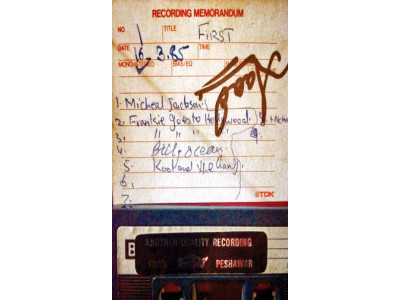 RECORDING MEMORANDUM
NO. 1 TITLE FIRST
DATE 16.3.85 TIME
MONO/STEREO BIAS/EQ
1. Micheal Jackson.
2. Frankie goes to Hollywood. 8. Micha
3. " " " " 9.
4. Billy ocean.
5. Kool and the Gang.
6.
7.
TDK
B
ANOTHER QUALITY RECORDING
FROM PESHAWAR